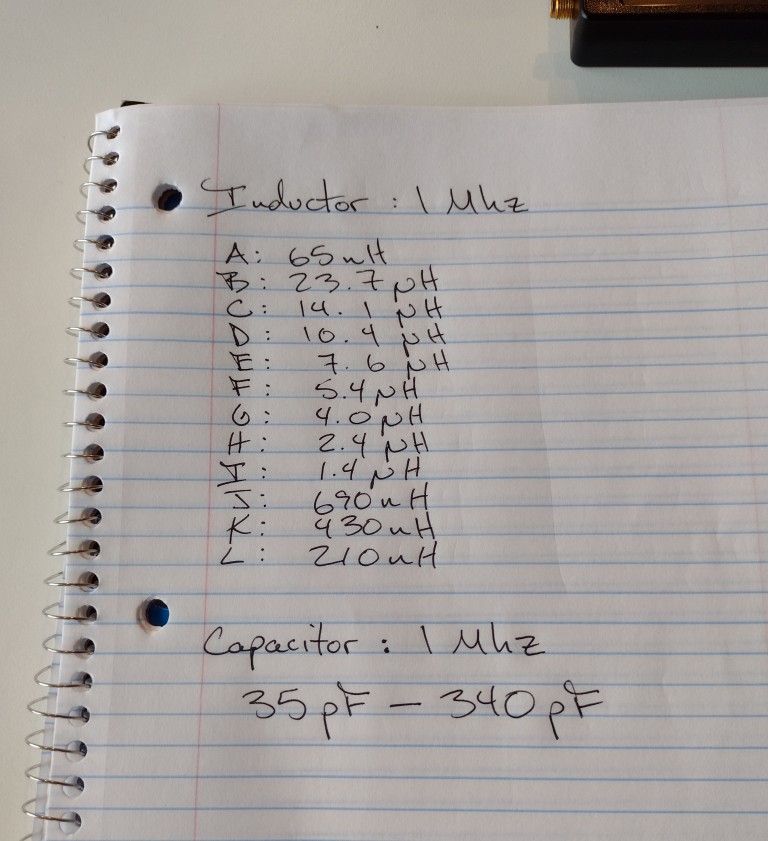 Inductor : 1 Mhz
A: 65 nH
B: 23.7 μH
C: 14.1 μH
D: 10.4 μH
E: 7.6 μH
F: 5.4 μH
G: 4.0 μH
H: 2.4 μH
I: 1.4 μH
J: 690 nH
K: 430 nH
L: 210 nH
Capacitor : 1 Mhz
35 pF – 340 pF